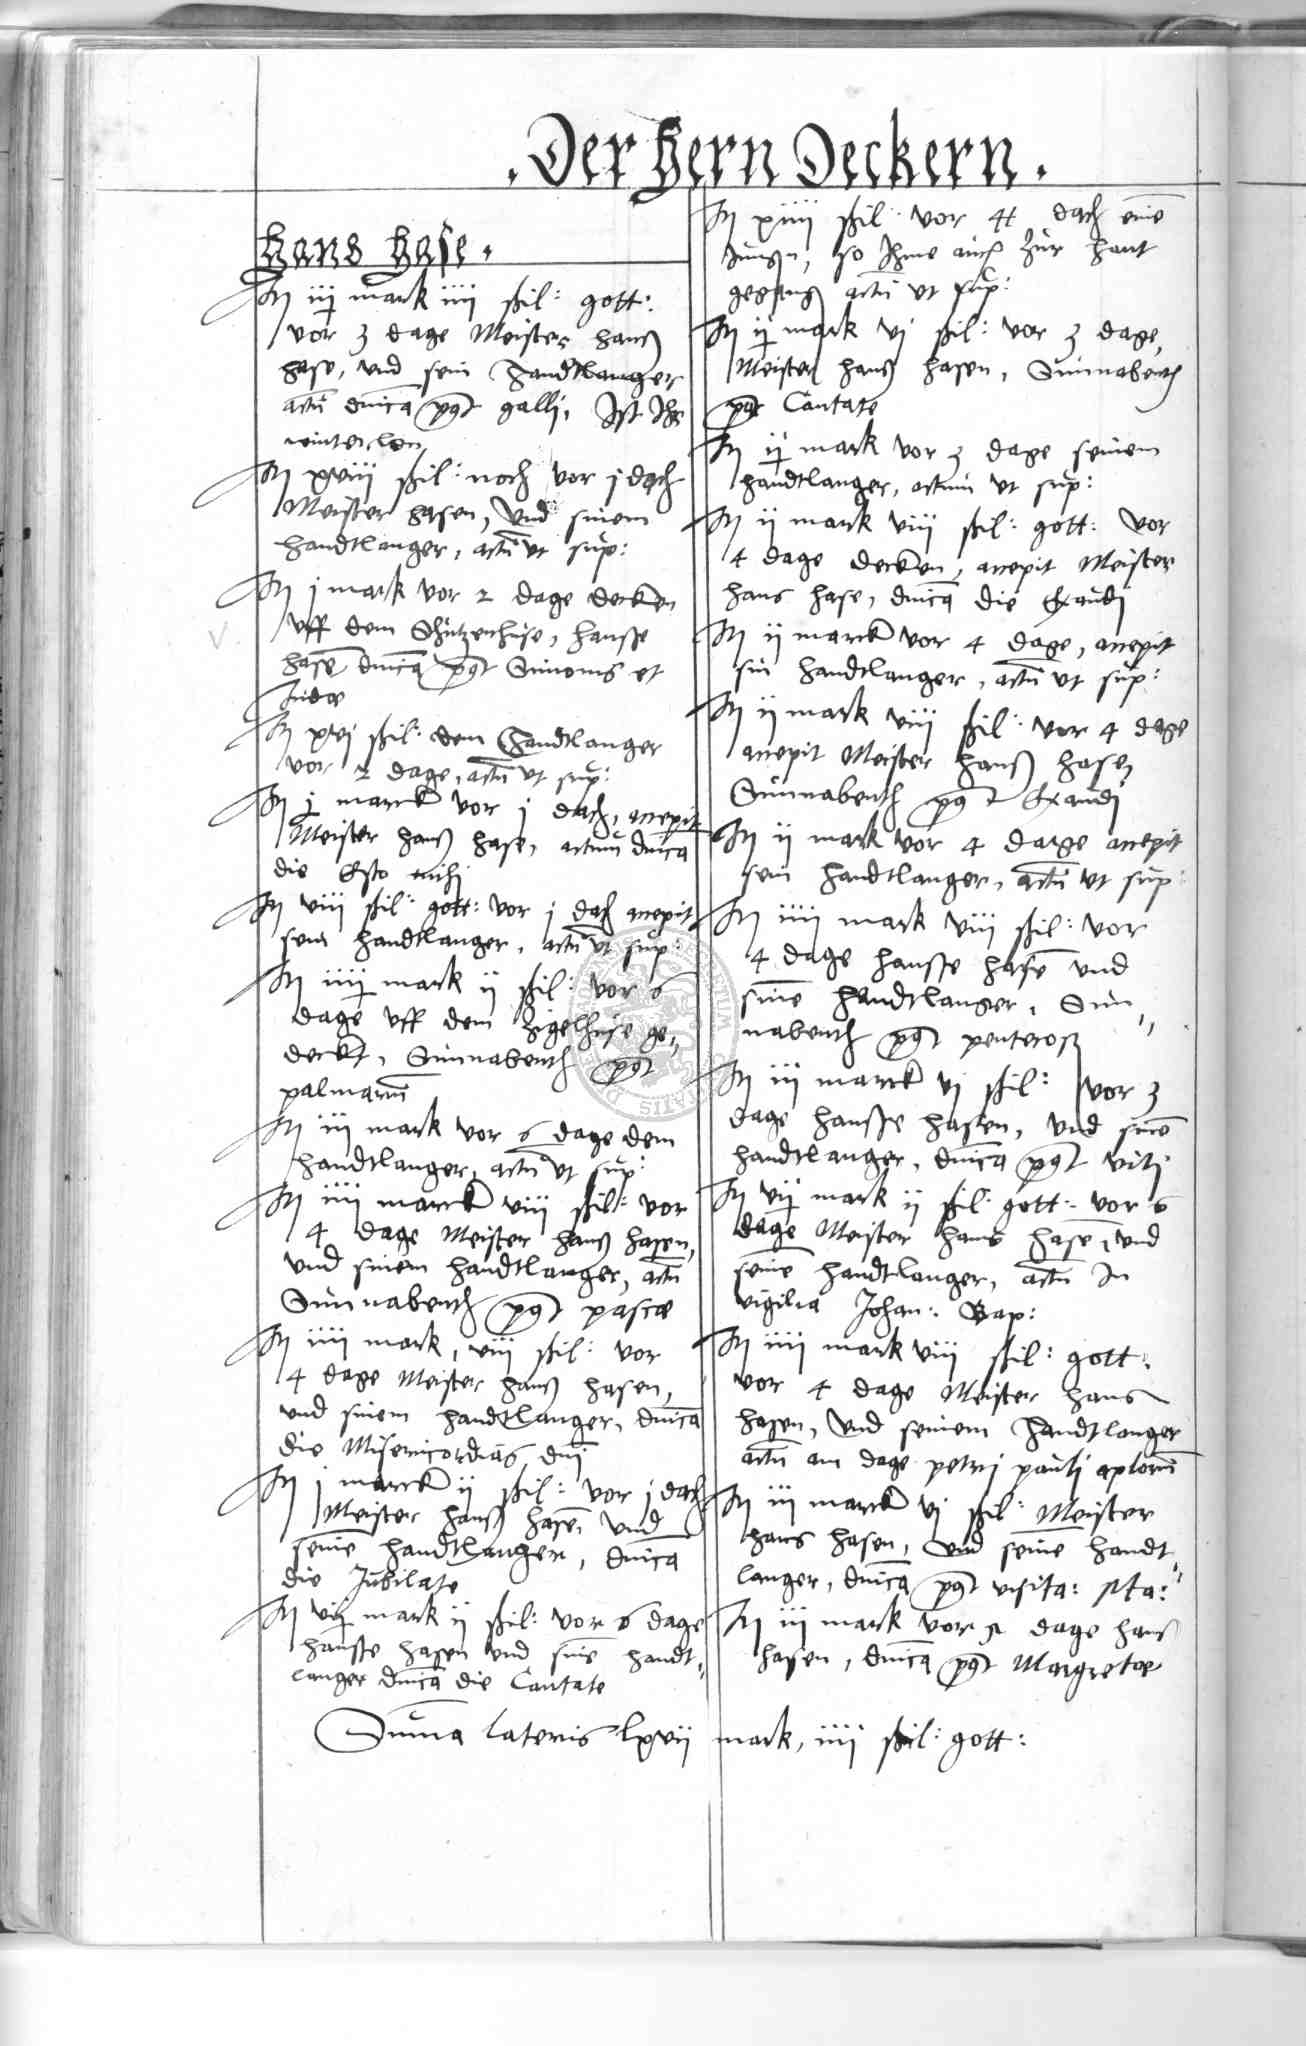 . Der hern Deckern .
hans hase .
It iij mark iiij ßil: gott:
vor 3 dage Meister hanß
hase, vnd sein handtlanger
actū dnīca post galli, Ist Ihr
winterlon
It xviij ßil: noch vor j dach
Meister hasen, vnd sinem
handtlanger, actū vt sup:
It j mark vor 2 dage decken
vff dem Schützenhuse, hansse
hasē dnīca post Simonis et
Judæ
It xvj ßil: dem handtlanger
vor 2 dage, actū vt sup:
It j marck vor j dach, accepit
Meister hanß hase, actum dnīca
die Esto mihj
It viij ßil: gott: vor j dach accepit
sein handtlanger, actū vt sup:
It iiij mark ij ßil: vor 6
dage vff dem Zigelhuse ge„
deckt, Sünnabenth post
palmarum̄
It iij mark vor 6 dage dem
handtlanger, actū vt sup:
It iiij marck viij ßil: vor
4 dage Meister hanß hasen,
vnd sinem handtlanger, actū
Sünnabenth post pascæ
It iiij mark, viij ßil: vor
4 dage Meister hanß hasen,
vnd sinem handtlanger, dnīca
die Misericordias dnī
It j marck ij ßil: vor j dach
Meister hanß hasē vnd
seinē handtlanger, dnīca
die Jubilate
It vij mark ij ßil: vor 6 dage
hansse hasen vnd sinē handt„
langer dnīca die Cantate
It xiiij ßil: vor 4 dach einē
Jungen, so Ihme auch zur hant
gegang actū vt sup:
It ij mark vj ßil: vor 3 dage,
Meister hanß hasen, Sünnabenth
post Cantate
It ij mark vor 3 dage seinem
handtlanger, actum vt sup:
It ij mark viij ßil: gott: vor
4 dage decken, accepit Meister
hans hase, dnīca die Exaudj
It ij marck vor 4 dage, accepit
sin handtlanger, actū vt sup:
It ij mark viij ßil: vor 4 dage
accepit Meister hanß hasen
Sünnabenth post Exaudj
It ij mark vor 4 darge accepit
sein handtlanger, actū vt sup:
It iiij mark viij ßil: vor
4 dage hansse hasē vnd
sinē handtlanger, Sün„
nabenth post pentecost
It iij marck vj ßil: vor 3
dage hansse hasen, vnd sinē
handtlanger, dnīca post vitj
It vij mark ij ßil: gott: vor 6
dage Meister hans hasē, vnd
seinē handtlanger, actū In
vigilia Johan: Bap:
It iiij mark viij ßil: gott:
vor 4 dage Meister hans
hasen, vnd seinem handtlanger
actū am dage petrj paulj aplorum̄
It iij marck vj ßil: Meister
hans hasen, vnd seinē handt„
langer, dnīca post visita:
It iij mark vor dage hanß
hasen, dnīca post Margretæ
Sum̄a lateris lxvij mark, iiij ßil: gott: